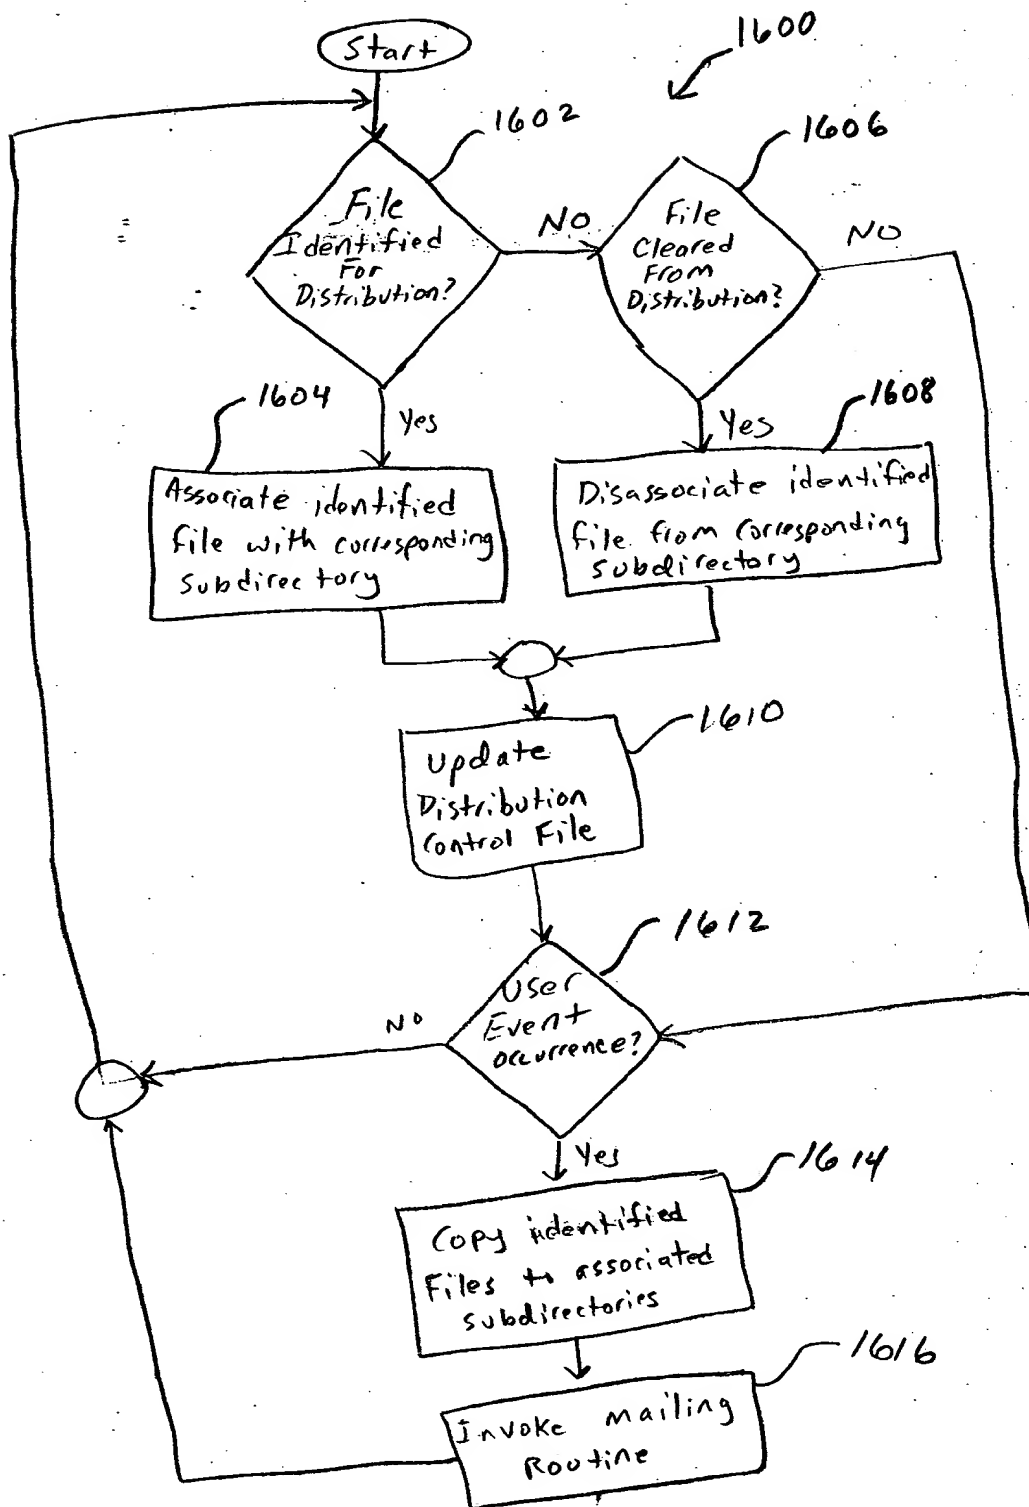 Start
1600
1602
1606
File
Identified
For
Distribution?
NO
File
Cleared
From
Distribution?
NO
1604
Yes
1608
Yes
Associate identified
file with corresponding
subdirectory
Disassociate identified
file from corresponding
subdirectory
1610
Update
Distribution
Control File
1612
User
Event
Occurrence?
NO
Yes
1614
Copy identified
Files to associated
subdirectories
1616
Invoke mailing
Routine